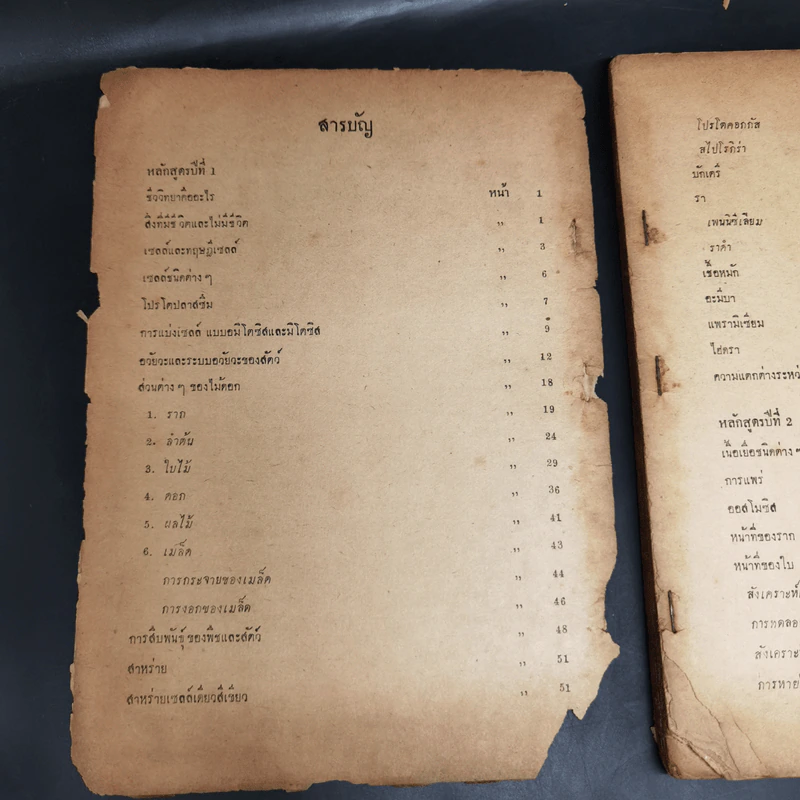 สารบัญ
หลักสูตรปีที่ 1
ชีววิทยาคืออะไร หน้า 1
สิ่งที่มีชีวิตและไม่มีชีวิต ,, 1
เซลล์และทฤษฎีเซลล์ ,, 3
เซลล์ชนิดต่าง ๆ ,, 6
โปรโตปลาสซึม ,, 7
การแบ่งเซลล์ แบบอมิโตซิสและมิโตซิส ,, 9
อวัยวะและระบบอวัยวะของสัตว์ ,, 12
ส่วนต่าง ๆ ของไม้ดอก ,, 18
1. ราก ,, 19
2. ลำต้น ,, 24
3. ใบไม้ ,, 29
4. ดอก ,, 36
5. ผลไม้ ,, 41
6. เมล็ด ,, 43
การกระจายของเมล็ด ,, 44
การงอกของเมล็ด ,, 46
การสืบพันธุ์ของพืชและสัตว์ ,, 48
สาหร่าย ,, 51
สาหร่ายเซลล์เดียวสีเขียว ,, 51
โปรโตคอกกัส
สไปโรกีร่า
บักเตรี
รา
เพนนิซีเลียม
ราดำ
เชื้อหมัก
อะมีบา
แพรามิเซียม
ไฮดรา
ความแตกต่างระหว่
หลักสูตรปีที่ 2
เนื้อเยื่อชนิดต่าง ๆ
การแพร่
ออสโมซิส
หน้าที่ของราก
หน้าที่ของใบ
สังเคราะห์
การทดลอ
สังเคราะ
การหายใ